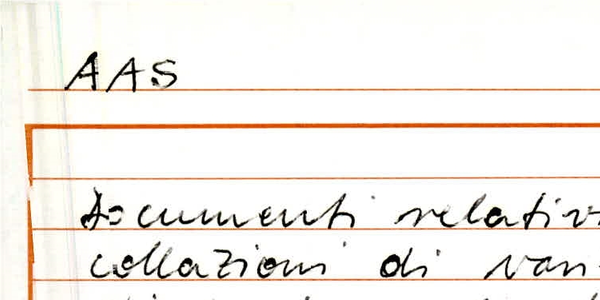 AAS
Documenti relativ
collazioni di van